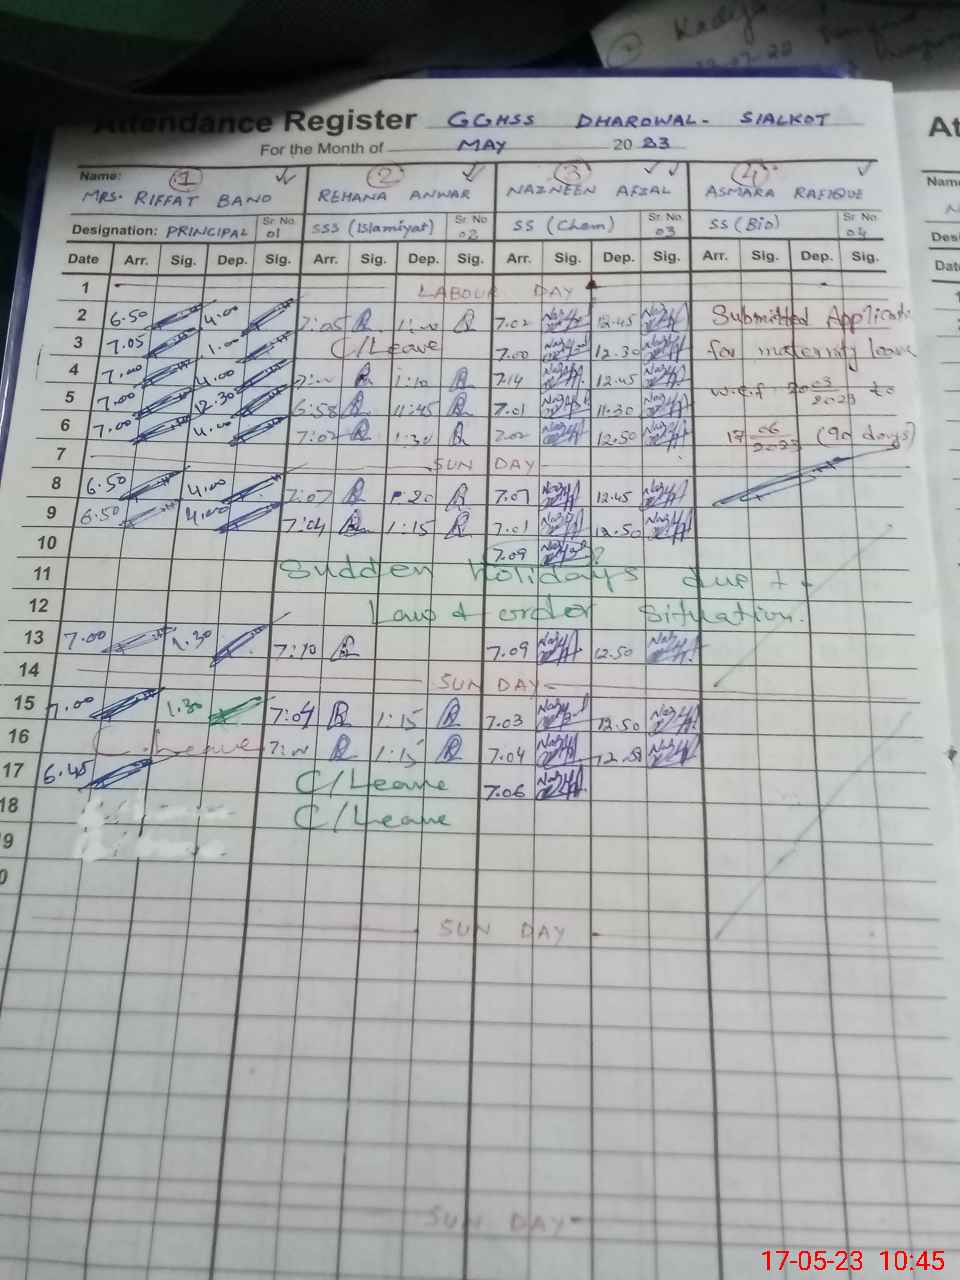 Kadija
Attendance Register GGHSS DHAROWAL- SIALKOT
For the Month of MAY 2023
At
Name: 1 2 3 4
MRS. RIFFAT BANO REHANA ANWAR NAZNEEN AFZAL ASMARA RAFIQUE
Name
Designation: PRINCIPAL Sr. No. 01 SSS (Islamiyat) Sr. No. 02 SS (Chem) Sr. No. 03 SS (Bio) Sr. No. 04
Desi
Date Arr. Sig. Dep. Sig. Arr. Sig. Dep. Sig. Arr. Sig. Dep. Sig. Arr. Sig. Dep. Sig.
Dat
1 LABOUR DAY
2 6.50 4.00 7:05 7.02 12.45 Submitted Applicati
3 7.05 1.00 C/Leave 7.00 12.30 for maternity leave
4 7.00 4.00 1:10 7.14 12.45
5 7.00 12.30 6:58 11:45 7.01 11.30 w.e.f 20 03/2023 to
6 7.00 4.00 7:02 1:30 7.02 12.50 17 06/2023 (90 days)
7 SUN DAY
8 6.50 4.00 7:07 1:20 7.07 12.45
9 6.50 4.00 7:04 1:15 7.01 12.50
10 7.09 ?
11 Sudden Holidays due to
12 Law & order Situation.
13 7.00 1.30 7:10 7.09 12.50
14 SUN DAY
15 7.00 1.30 7:04 1:15 7.03 12.50
16 C. Leave 1:15 7.04
17 6.45 C/Leave 7.06
18 C/Leave
9
0
SUN DAY
SUN DAY
17-05-23 10:45